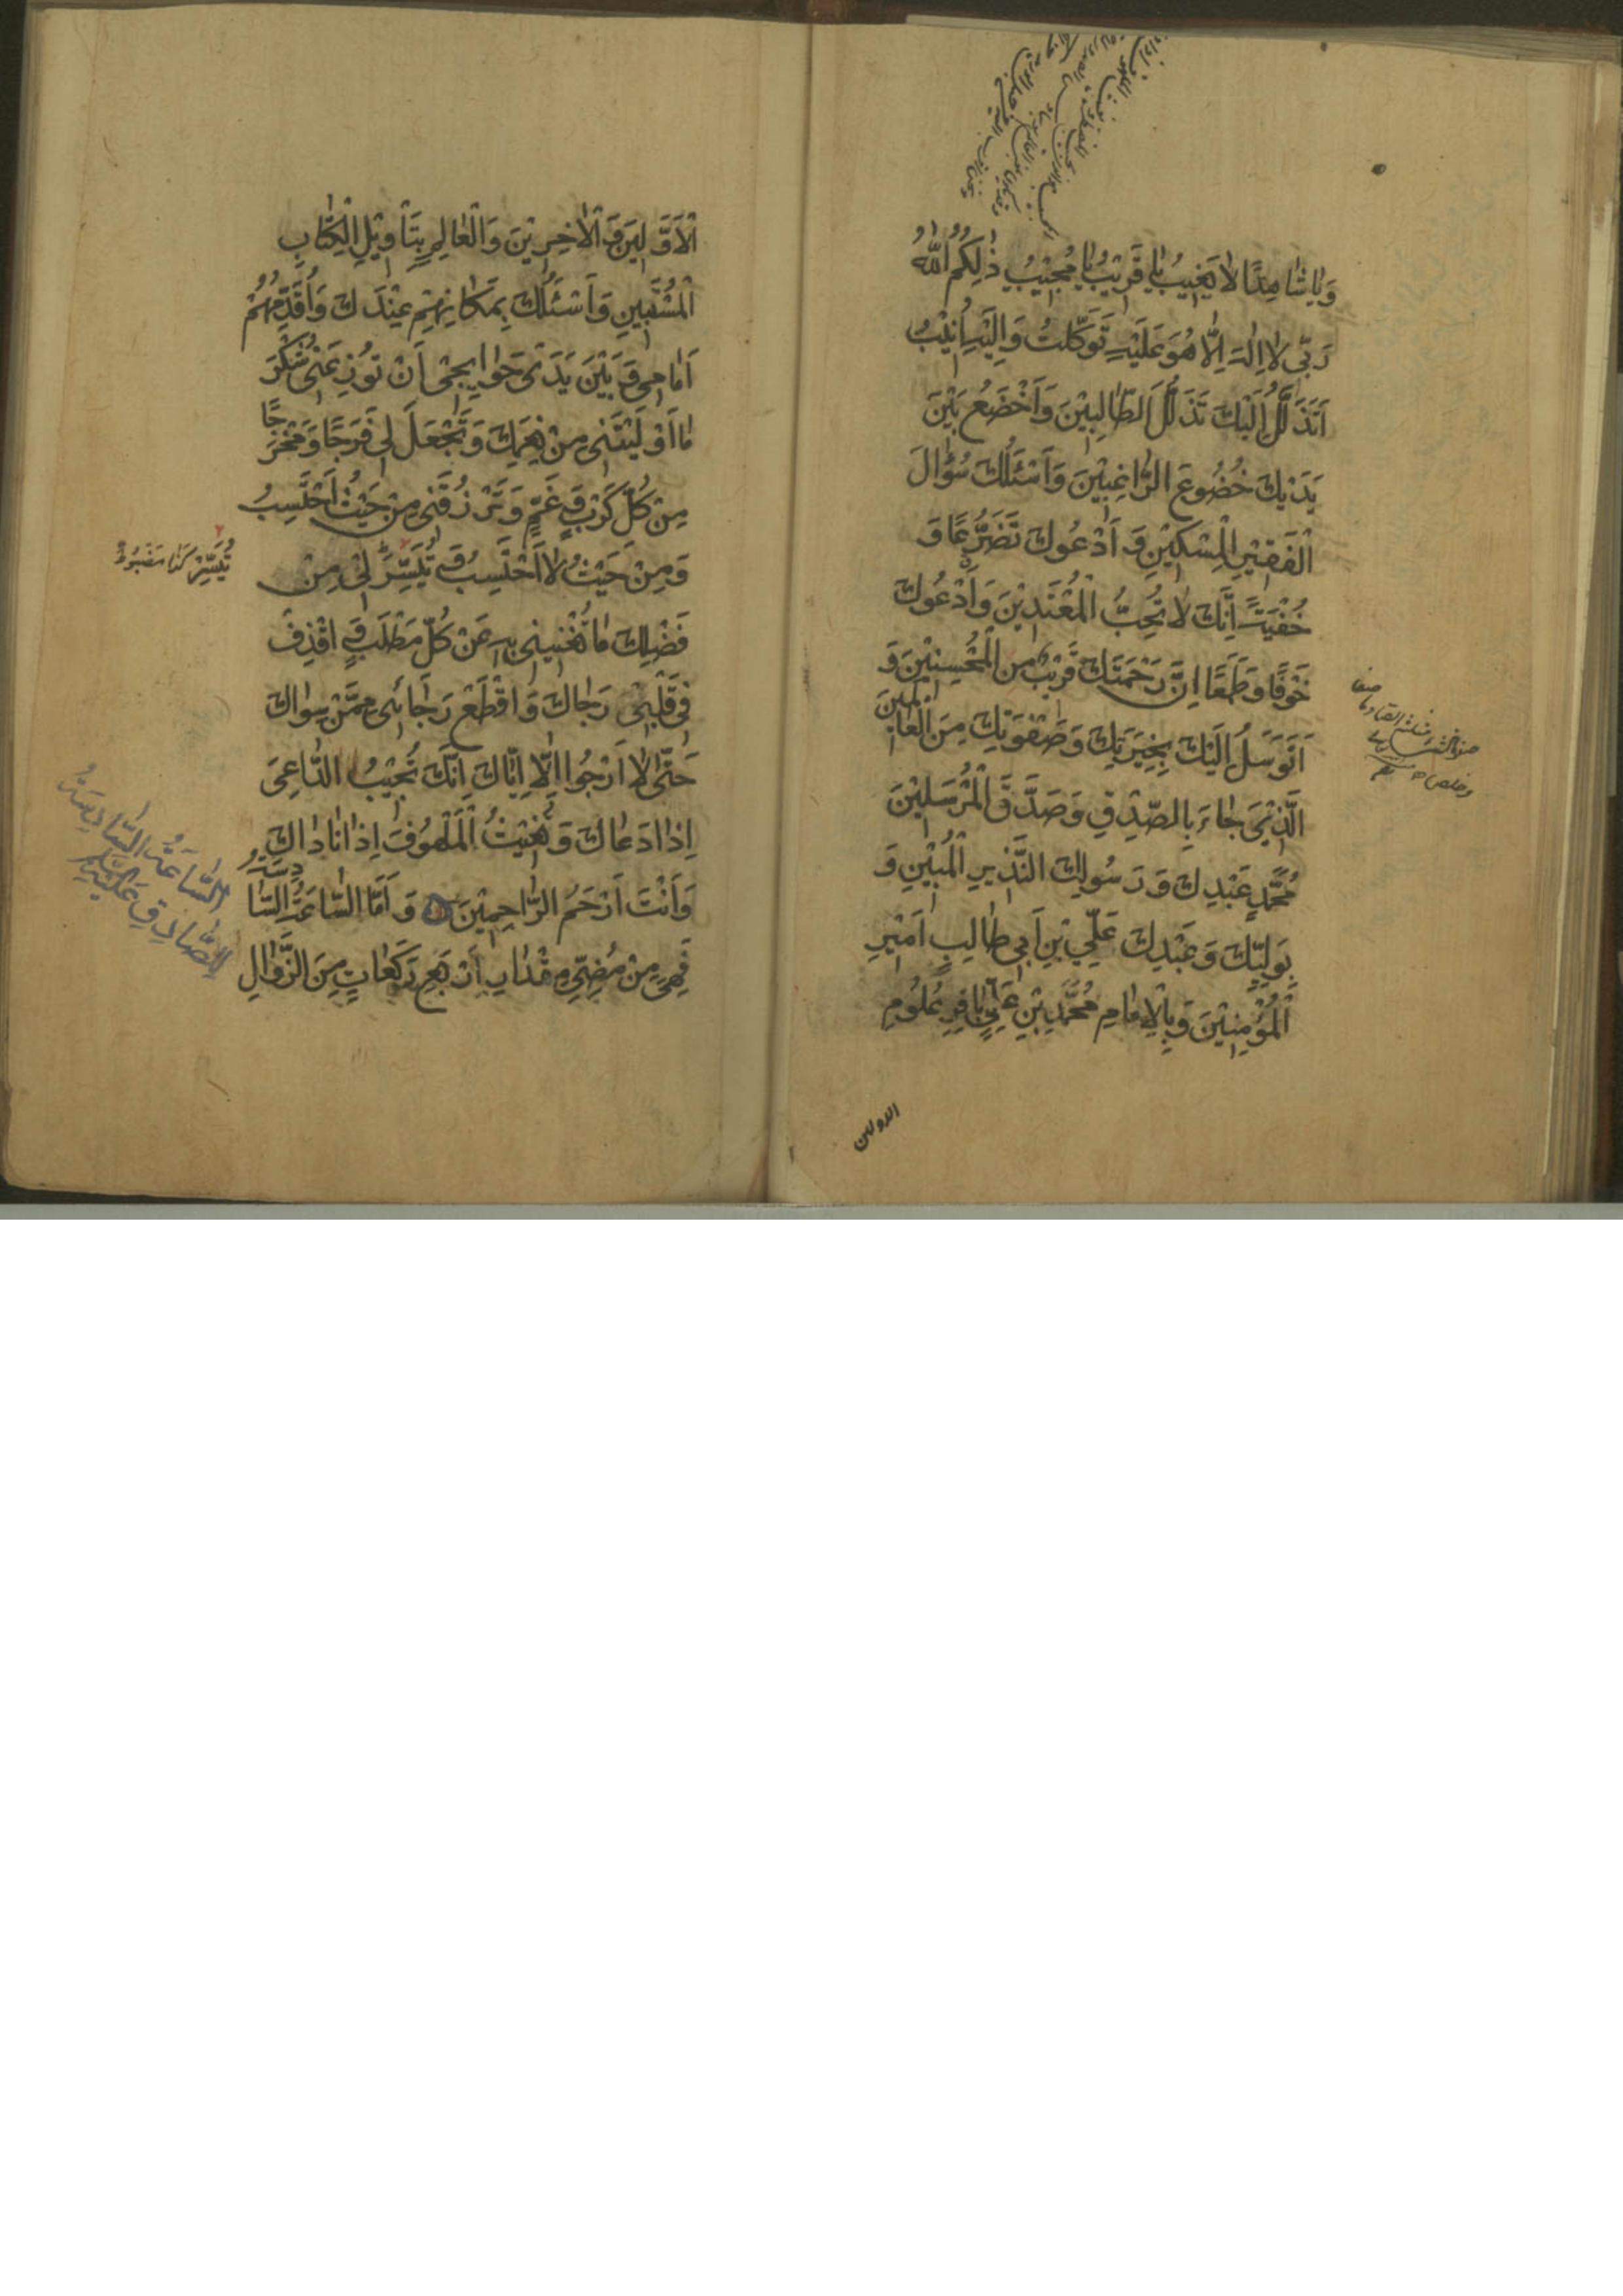 وَيٰا شٰاهِدًا لٰا يَغِيبُ يٰا قَرِيْبُ يٰا مُجِيْبُ ذٰلِكُمُ اللّٰهُ
رَبِّي لٰا اِلٰهَ اِلَّا هُوَ عَلَيْهِ تَوَكَّلْتُ وَاِلَيْهِ اُنِيْبُ
اَتَذَلَّلُ اِلَيْكَ تَذَلُّلَ الطّٰالِبِيْنَ وَاَخْضَعُ بَيْنَ
يَدَيْكَ خُضُوعَ الرّٰاغِبِيْنَ وَاَسْئَلُكَ سُؤٰالَ
الْفَقِيْرِ الْمِسْكِيْنِ وَ اَدْعُوكَ تَضَرُّعًا وَ
خُفْيَةً اِنَّكَ لٰا تُحِبُّ الْمُعْتَدِيْنَ وَاَدْعُوكَ
خَوْفًا وَطَمَعًا اِنَّ رَحْمَتَكَ قَرِيْبٌ مِنَ الْمُحْسِنِيْنَ وَ
اَتَوَسَّلُ اِلَيْكَ بِخِيَرَتِكَ وَصَفْوَتِكَ مِنَ الْعٰالَمِينَ
الَّذِيْ جٰاءَ بِالصِّدْقِ وَصَدَّقَ الْمُرْسَلِيْنَ
مُحَمَّدٍ عَبْدِكَ وَ رَسُولِكَ النَّذِيرِ الْمُبِيْنِ وَ
بِوَلِيِّكَ وَعَبْدِكَ عَلِيِّ بْنِ اَبِي طٰالِبٍ اَمِيْرِ
الْمُؤْمِنِيْنَ وَبِالْاِمٰامِ مُحَمَّدِ بْنِ عَلِيٍّ بٰاقِرِ عُلُومِ
الاولين
الْاَوَّلِيْنَ وَ الْاٰخِرِيْنَ وَالْعٰالِمِ بِتَأْوِيْلِ الْكِتٰابِ
الْمُسْتَبِينِ وَاَسْئَلُكَ بِمَكٰانِهِمْ عِنْدَكَ وَاُقَدِّمُهُمْ
اَمٰامِي وَ بَيْنَ يَدَيْ حَوٰايِجِيْ اَنْ تُوزِعَنِيْ شُكْرَ
مٰا اَوْلَيْتَنِي مِنْ نِعَمِكَ وَتَجْعَلَ لِي فَرَجًا وَمَخْرَجًا
مِنْ كُلِّ كَرْبٍ وَ غَمٍّ وَتَرْزُقَنِي مِنْ حَيْثُ اَحْتَسِبُ
وَمِنْ حَيْثُ لٰا اَحْتَسِبُ وَ تُيَسِّرَ لِيْ مِنْ
تُيَسِّرْ كَذٰا مَضْبُوطٌ
فَضْلِكَ مٰا تُغْنِينِي بِهِ عَنْ كُلِّ مَطْلَبٍ وَ اقْذِفْ
فِي قَلْبِيْ رَجٰاكَ وَ اقْطَعْ رَجٰائِي مِمَّنْ سِوٰاكَ
حَتّٰى لٰا اَرْجُوا اِلَّا اِيّٰاكَ اِنَّكَ تُجِيْبُ الدّٰاعِيَ
اِذٰا دَعٰاكَ وَ تُغِيْثُ الْمَلْهُوفَ اِذٰا نٰادٰاكَ
وَاَنْتَ اَرْحَمُ الرّٰاحِمِيْنَ وَ اَمَّا السّٰاعَةُ السّٰادِسَةُ
فَهِيَ مِنْ مُضِيِّ مِقْدٰارِ اَرْبَعِ رَكَعٰاتٍ مِنَ الزَّوٰالِ
السّٰاعَةُ السّٰادِسَةُ
لِلصّٰادِقِ عَلَيْهِ